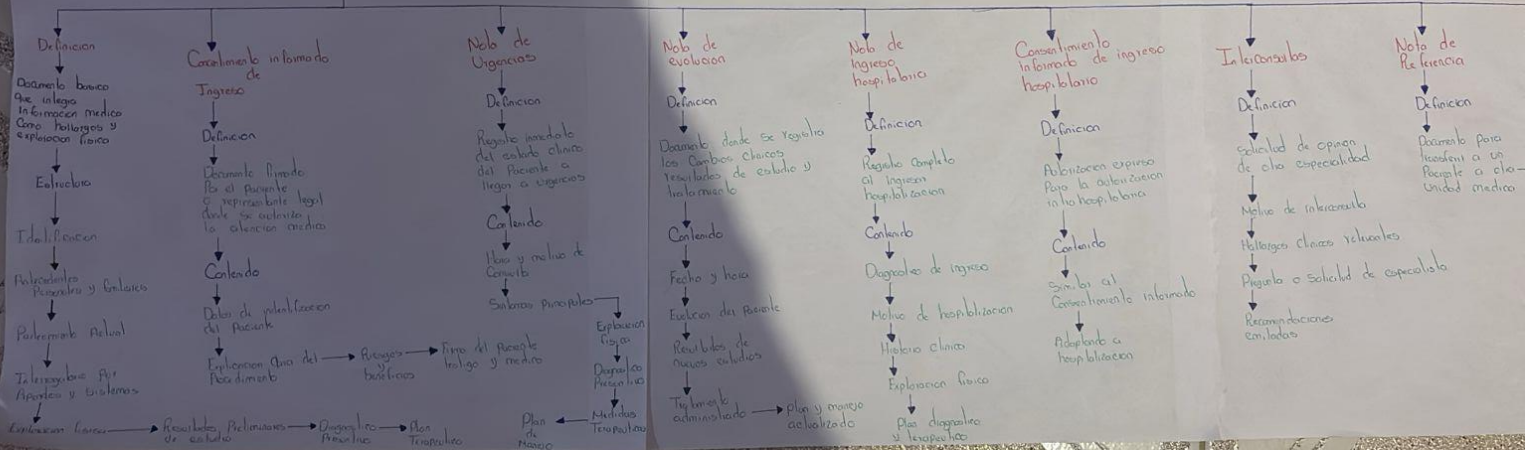 Definicion
Documento basico
que integra
informacion medico
como hallazgos y
exploracion fisica
Estructura
Antecedentes
Personales y
Padecimiento Actual
Interrogatorio por
Aparatos y Sistemas
Exploracion fisica
Resultados Preliminares
de estudio
Diagnostico
Presuntivo
Plan
Terapeutico
informado
de
Ingreso
Definicion
Documento firmado
Por el paciente
o representante legal
donde se autoriza
la atencion medico
Contenido
Datos de identificacion
del Paciente
Explicacion clara del
Procedimiento
Riesgos
y
beneficios
Firma del paciente
testigo y medico
Nota de
Urgencias
Definicion
Registro inmediato
del estado clinico
del Paciente a
llegar a urgencias
Contenido
Hora y motivo de
Consulta
Sintomas principales
Exploracion
fisica
Diagnostico
Presuntivo
Medidas
Terapeuticas
Plan
de
Manejo
Nota de
evolucion
Definicion
Documento donde se registra
los Cambios clinicos
resultados de estudio y
tratamiento
Contenido
Fecha y hora
Evolucion del Paciente
Resultados de
nuevos estudios
administrado
Plan y manejo
actualizado
Nota de
Ingreso
hospitalario
Definicion
Registro Completo
al Ingreso
hospitalizacion
Contenido
Diagnostico de ingreso
Motivo de hospitalizacion
Historia clinica
Exploracion fisica
Plan diagnostico
y terapeutico
Consentimiento
Informado de ingreso
hospitalario
Definicion
Autorizacion expresa
Para la
intrahospitalaria
Contenido
Similar al
Consentimiento informado
Adaptando a
hospitalizacion
Interconsultas
Definicion
Solicitud de opinion
de otra especialidad
Motivo de interconsulta
Hallazgos clinicos relevantes
Pregunta o Solicitud de especialista
Recomendaciones
emitadas
Nota de
Referencia
Definicion
Documento para
a un
Paciente a otra
Unidad medica